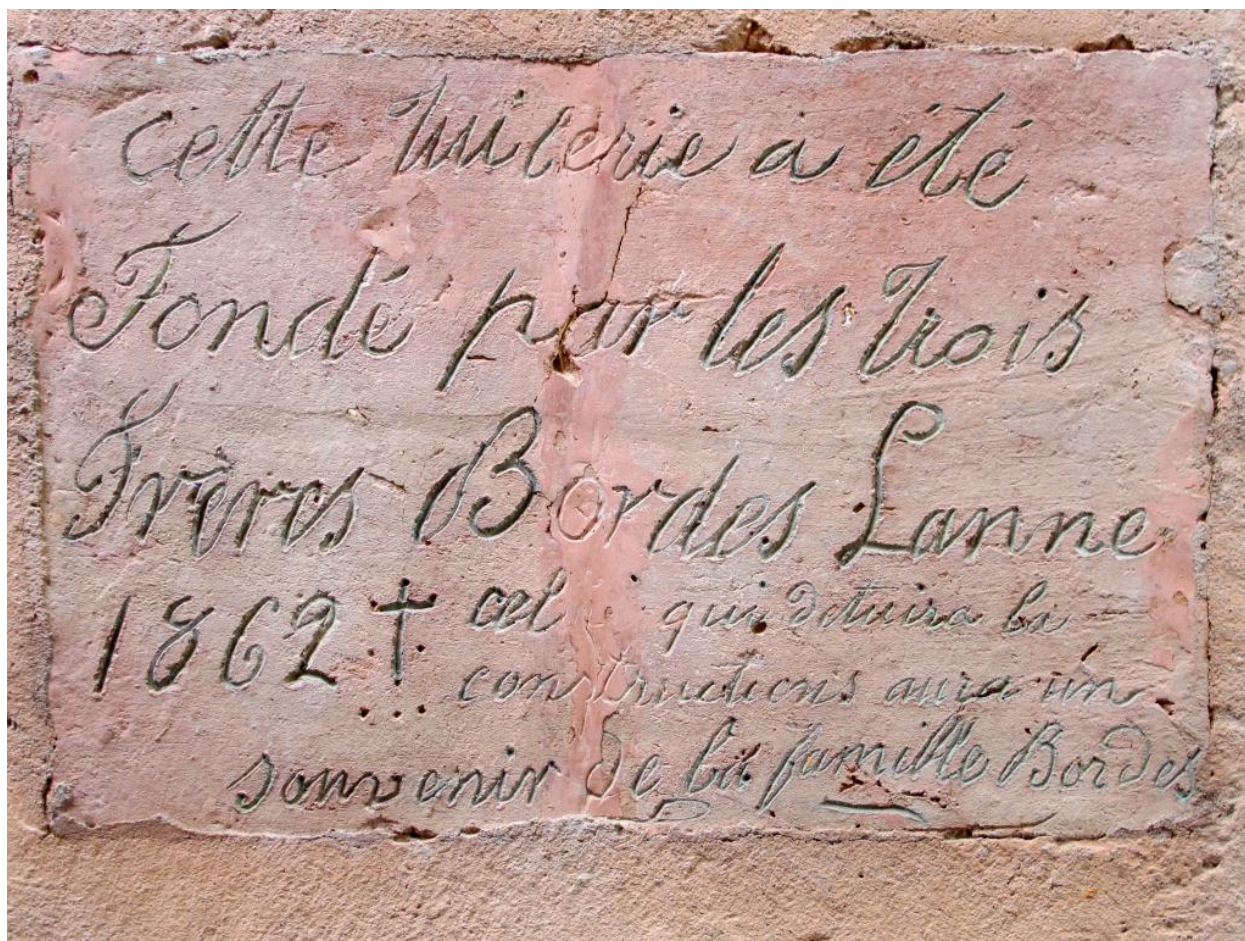 cette Tuilerie a été
Fondé par les trois
Frères Bordes Lanne
1862 † celui qui détuira la
constructions aura un
souvenir de la famille Bordes